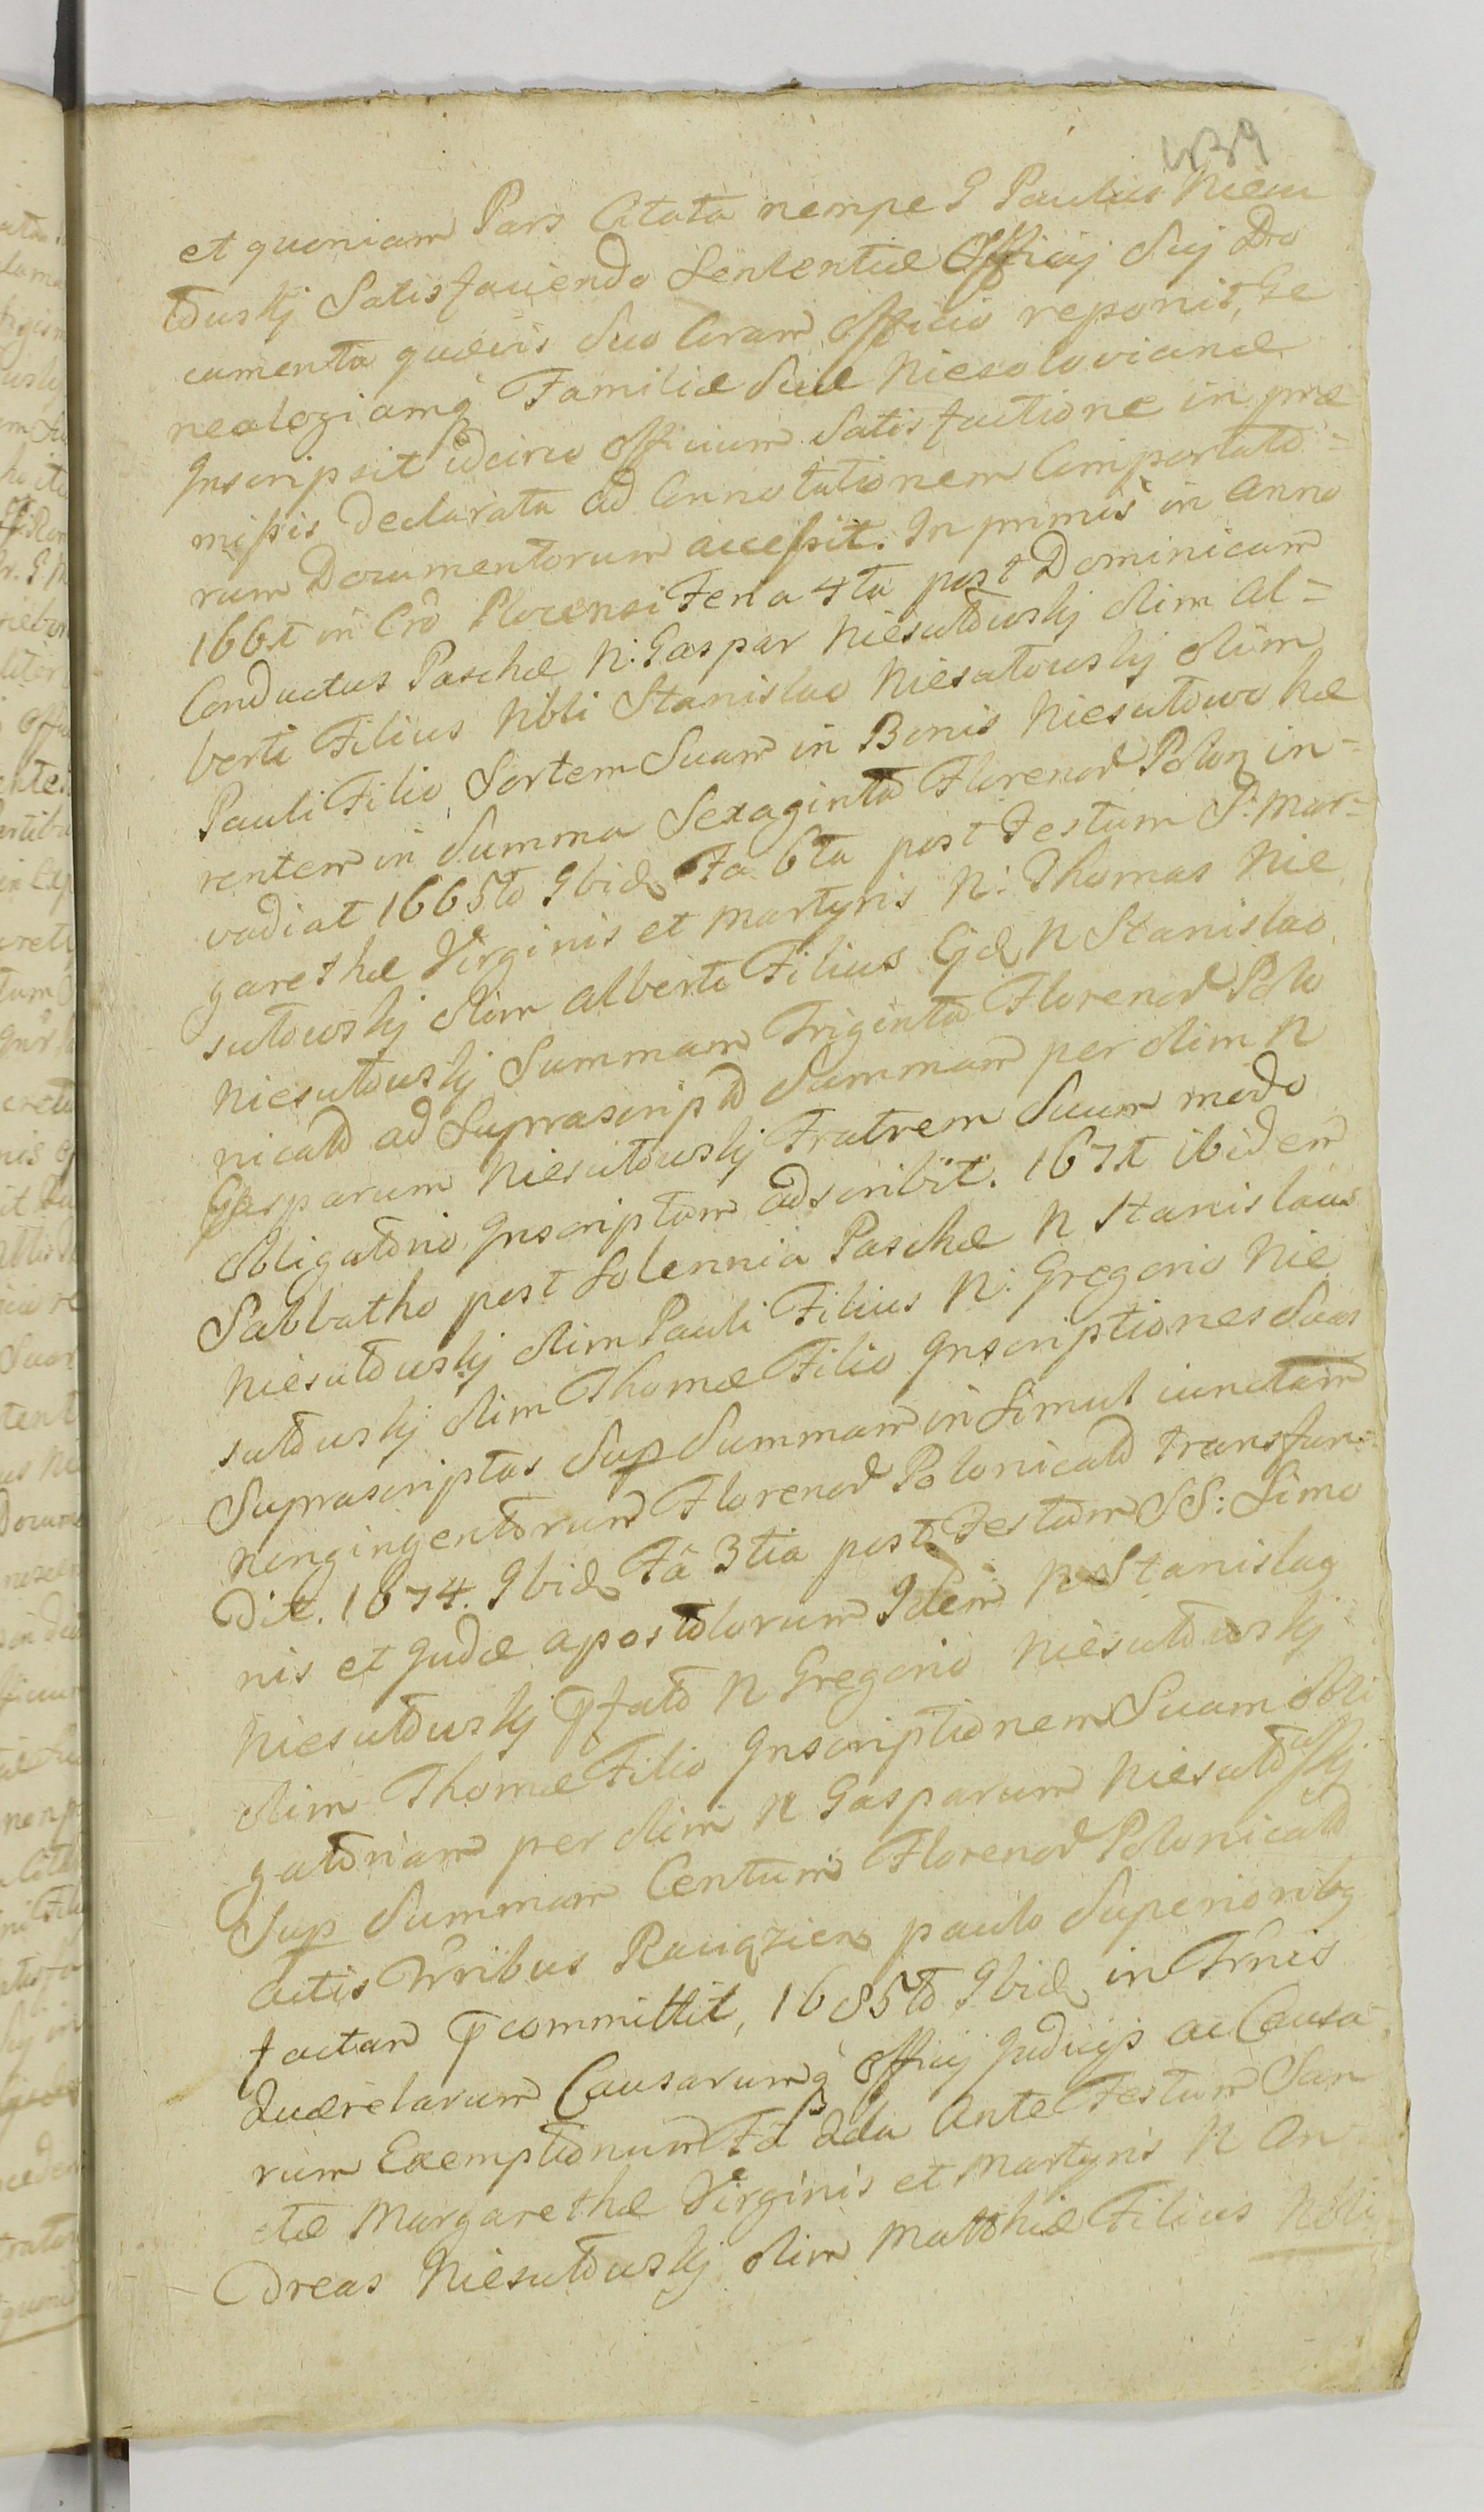 439
et quoniam Pars Citata nempe G Paulus Niesu
towskj Satisfaciendo Sententiæ Officij Sui Do
cumenta quævis Suo Coram Officio reponit, Ge
nealogiamq Familiæ Suæ Niesoloviane
Inscripsit idcirco Officium Satisfactione in præ
missis Declarata ad Connotationem Comportato=
rum Documentorum accessit. In primis in Anno
166t in Cro Plocensi Feria 4ta post Dominicam
Conductus Paschæ N: Gaspar Niesutowskj olim Al=
berti Filius Nbli Stanislao Niesutowskj olim
Pauli Filio Sortem Suam in Bonis Niesutowo hæ
rentem in Summa Sexaginta Floreno Polon in=
vadiat 1665to Ibid Fa 6ta post Festum S: Mar=
garethæ Virginis et Martyris N: Thomas Nie
sutowskj olim Alberti Filius Ejd N Stanislao
Niesutowskj Summam Triginta Floreno Polo
nicato ad Suprascripto Summam per olim N
Gasparum Niesutowskj Fratrem Suum modo
Obligatorio Inscriptam adscribit. 167t ibidem
Sabbatho post Solennia Paschæ N Stanislaus
Niesutowskj olim Pauli Filius N: Gregorio Nie
sutowskj olim Thomæ Filio Inscriptiones Suas
Suprascriptas Sup Summam in Simul iunctam
nongingentorum Floreno Polonicato transfun=
dit. 1674. Ibid Fa 3tia post Festum SS: Simo
nis et Judæ Apostolorum Idem N Stanislaq
Niesutowskj pfato N Gregorio Niesutowskj
olim Thomæ Filio Inscriptionem Suam obli
gatoriam per olim N Gasparum Niesutowskj
Sup Summam Centum Floreno Polonicato
Actis Wribus Raciązien paulo Superioribq
factam pcommittit, 1685to Ibid in Trnis
Querelarum Causarumq Officij Judicijs ac Causa
rum Exemptionum Fa 2da Ante Festum San
ctæ Margarethæ Virginis et Martyris N An
dreas Niesutowskj olim Matthiæ Filius Nbli